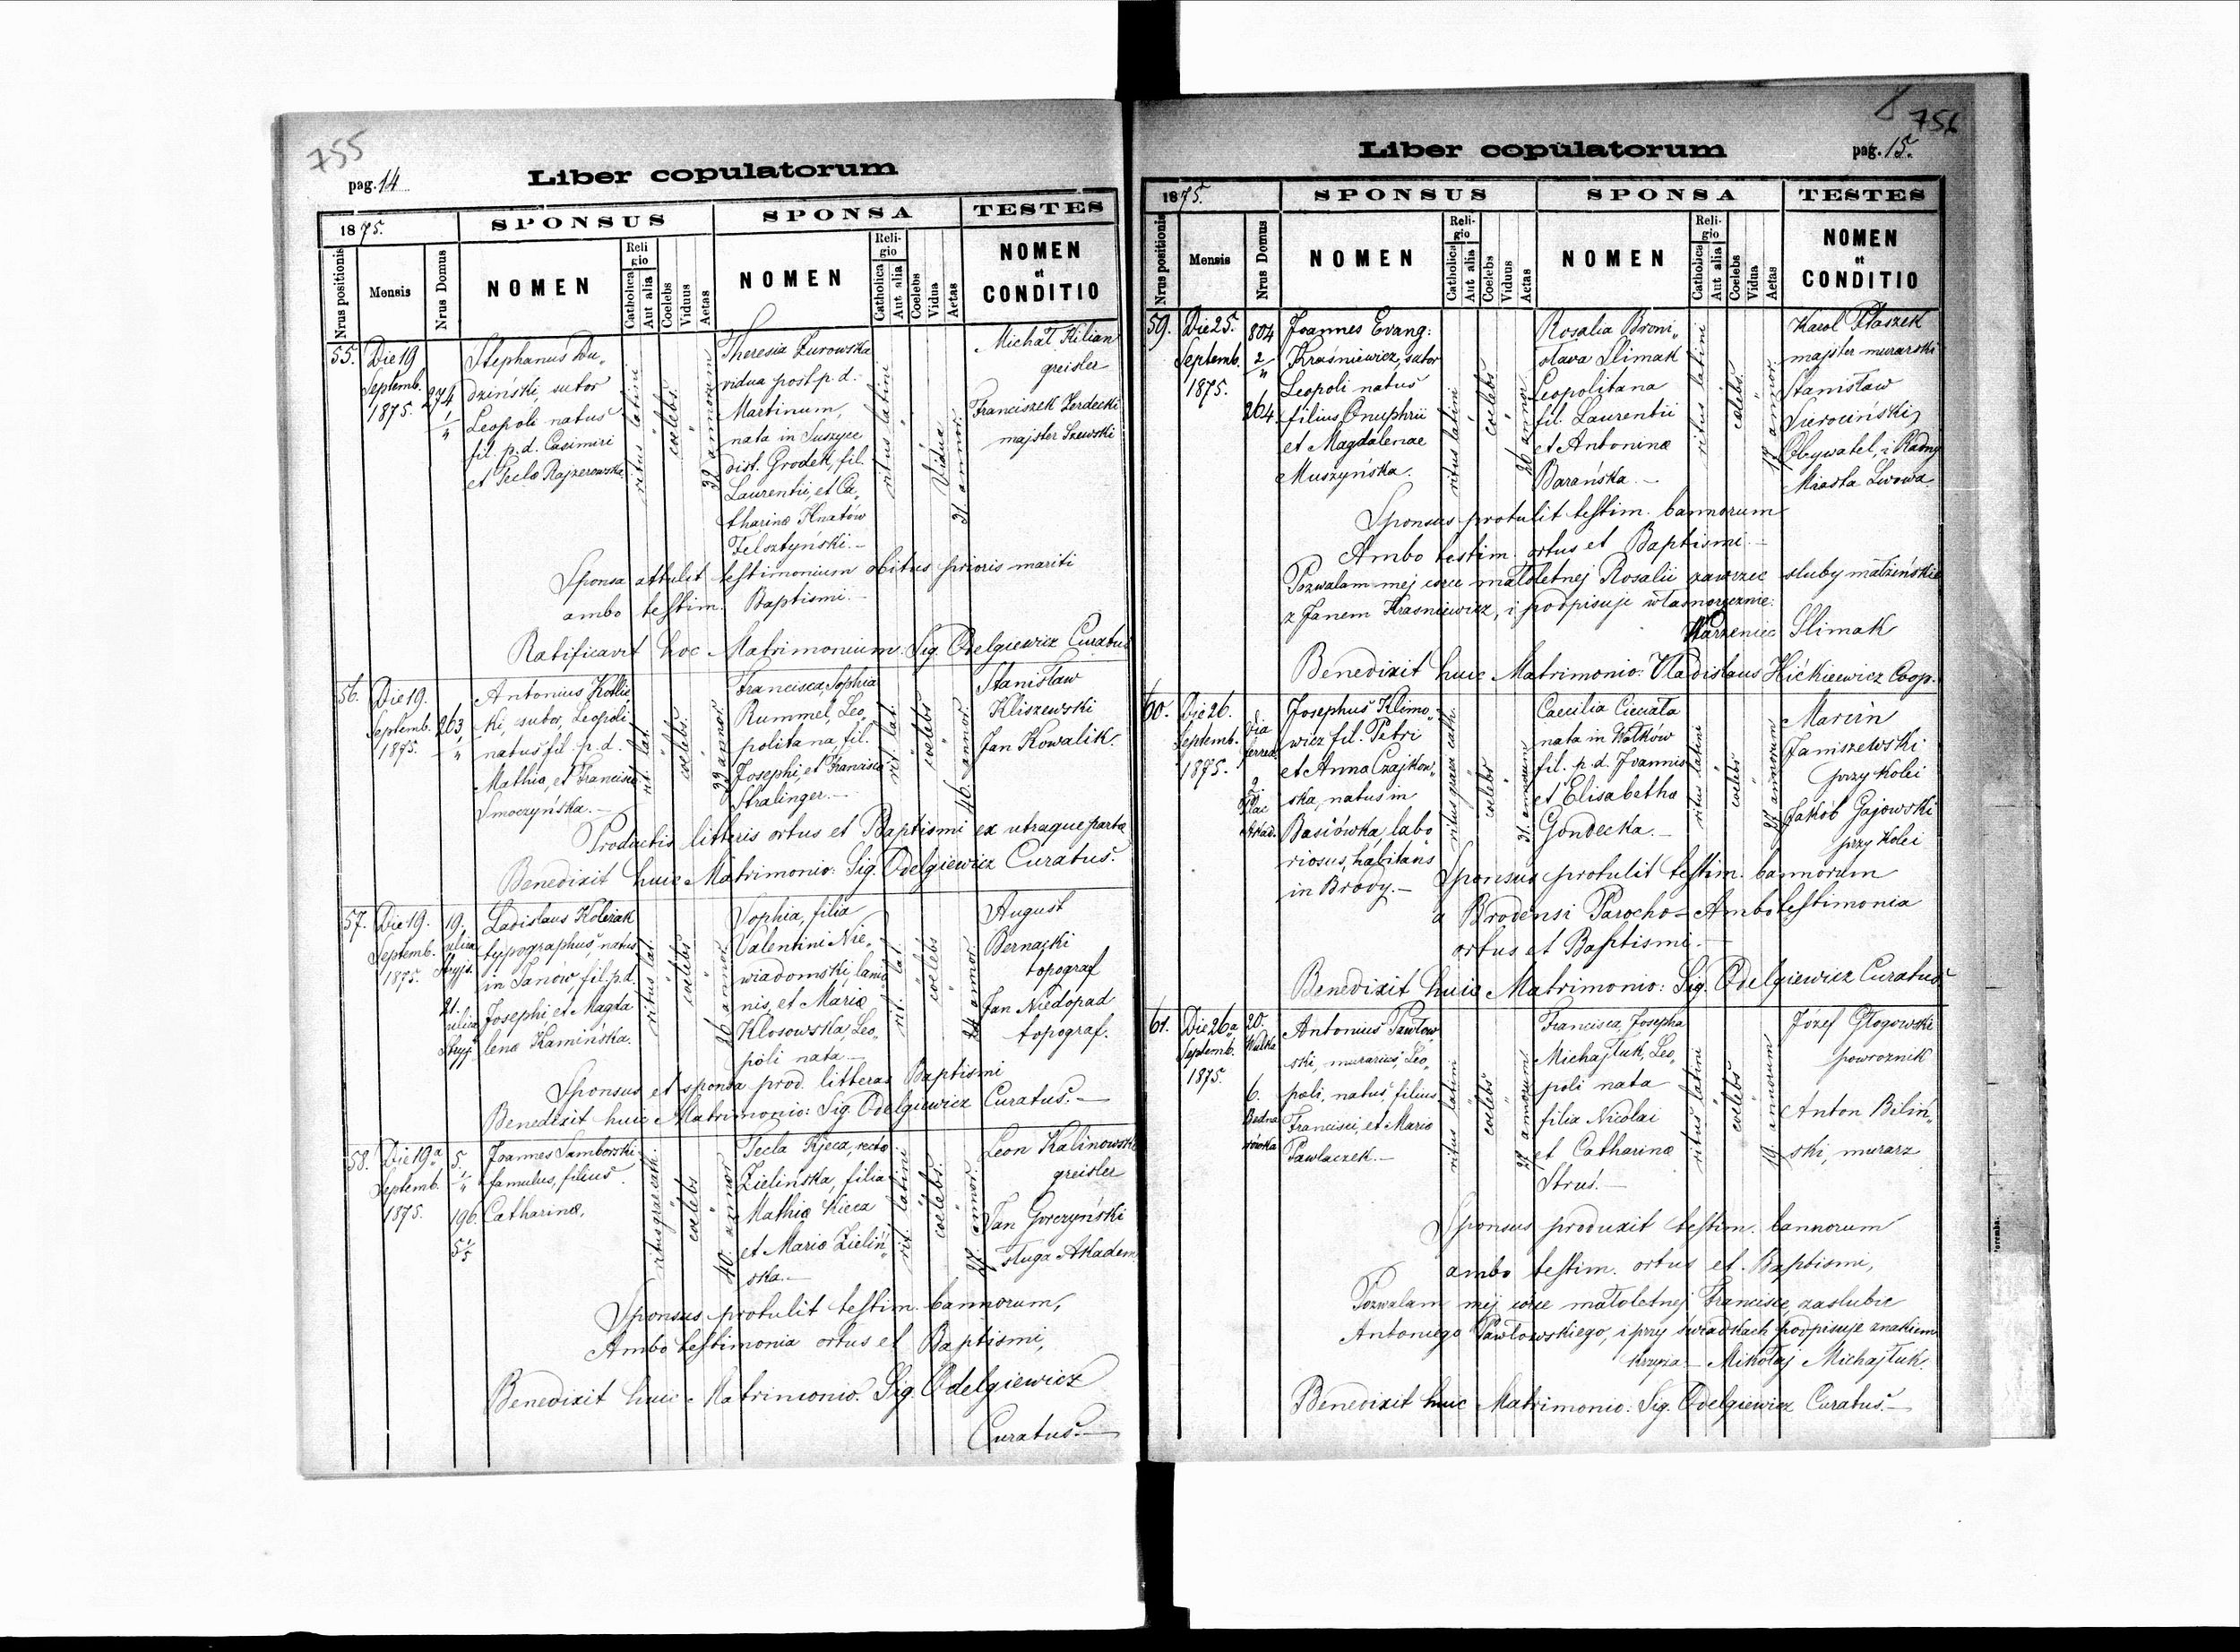 755
pag. 14
Liber copulatorum
1875.
SPONSUS
SPONSA
TESTES
Nrus positionis
Mensis
Nrus Domus
NOMEN
Religio
Catholica
Aut alia
Coelebs
Viduus
Aetas
NOMEN
Religio
Catholica
Aut alia
Coelebs
Vidua
Aetas
NOMEN
et
CONDITIO
55.
Die 19
Septemb.
1875.
274
1/4
Stephanus Du„
dziński, sutor
Leopoli natus
fil. p. d. Casimiri
et Teclæ Rajzerowska
ritus latini
coelebs.
32 annorum
Theresia Żurowska
vidua post p. d.
Martinum,
nata in Suszyce
dist. Grodek, fil.
Laurentii, et Ca„
tharinæ Hnatów
Felsztyński.—
ritus latini
Vidua
31. annor.
Michał Kilian
greisler
Franciszek Zerdecki
majster Szewski
Sponsa attulit testimonium obitus prioris mariti
ambo testim. Baptismi.—
Ratificavit hoc Matrimonium. Sig. Odelgiewicz Curatus
56.
Die 19.
Septemb.
1875.
263,
Antonius Kotlic
ki, sutor, Leopoli
natus fil. p. d.
Mathiæ, et Franciscæ
Smoczyńska.—
rit. lat.
coelebs.
33 annor.
Francisca, Sophia
Rummel, Leo„
politana, fil.
Josephi, et Franciscæ
Stralinger.—
rit. lat.
coelebs
46. annor.
Stanisław
Kliszewski
Jan Kowalik.
Productis litteris ortus et Baptismi ex utraque parte
Benedixit huic Matrimonio: Sig. Odelgiewicz Curatus.
57.
Die 19.
Septemb.
1875.
19,
ulica
Stryjs.
21.
ulica
Stryj.
Ladislaus Koleżak
typographus, natus
in Janów, fil. p. d.
Josephi et Magda
lenæ Kamińska.
ritus lat.
coelebs
26 annor.
Sophia, filia
Valentini Nie„
wiadomski, lanio
nis, et Mariæ
Klosowska, Leo„
poli nata—
rit. lat.
coelebs
24 annor.
August
Bernacki
topograf
Jan Niedopad
topograf.
Sponsus et sponsa prod. litteras Baptismi
Benedixit huic Matrimonio: Sig. Odelgiewicz Curatus.—
58.
Die 19a
Septemb.
1875.
5.
1/4
196.
Joannes Samborski
famulus, filius
Catharinæ,
ritus græc cath.
coelebs
40. annor
Tecla Kjeca, recte
Zielinska, filia
Mathiæ Kieca
et Mariæ Zieliń„
ska.—
rit. latini
coelebs.
27. annor.
Leon Kalinowski
greisler
Jan Gorczyński
sługa Akadem.
Sponsus protulit testim. bannorum,
Ambo testimonia ortus et Baptismi,
Benedixit huic Matrimonio. Sig. Odelgiewicz
Curatus.—
756
Liber copulatorum
pag. 15.
1875.
SPONSUS
SPONSA
TESTES
Nrus positionis
Mensis
Nrus Domus
NOMEN
Religio
Catholica
Aut alia
Coelebs
Viduus
Aetas
NOMEN
Religio
Catholica
Aut alia
Coelebs
Vidua
Aetas
NOMEN
et
CONDITIO
59.
Die 25.
Septemb.
1875.
804
2/4
264
Joannes Evang:
Kraśniewicz, sutor
Leopoli natus
filius Onuphrii
et Magdalenae
Muszyńska.
ritus latini
coelebs
26 annor.
Rosalia Broni„
slava Ślimak
Leopolitana
fil. Laurentii
et Antoninæ
Barańska.—
ritus latini
coelebs.
18 annor.
Karol Ptaszek
majster murarski
Stanisław
Sierociński,
Obywatel, i Radny
Miasta Lwowa.
Sponsus protulit testim. bannorum
Ambo testim. ortus et Baptismi.—
Pozwalam mej corce małoletnej Rosalii zawrzec sluby małżeńskie
z Janem Krasniewicz, i podpisuje własnoręcznie:
Warzeniec Slimak
Benedixit huic Matrimonio: Vladislaus Hićkiewicz Coop.
60.
Die 26.
Septemb.
1875.
Via
ferrea
2
Plac
Akad.
Josephus Klimo„
wicz fil. Petri
et Anna Czajkow„
ska, natus in
Basiówka, labo
riosus, habitans
in Brody.—
ritus graec cath.
coelebs
31. annorum
Caecilia Cieciała
nata in Wołków
fil. p. d. Joannis
et Elisabethæ
Gondecka.—
ritus latini
coelebs
27 annorum
Marcin
Janiszewski
przy Kolei
Jakób Gajowski
przy Kolei
Sponsus protulit testim. bannorum
a Brodensi Parocho— Ambo testimonia
ortus et Baptismi.—
Benedixit huic Matrimonio: Sig. Odelgiewicz Curatus
61.
Die 26a
Septemb.
1875.
20.
Wulka
6.
Bedna
rówka
Antonius Pawłow„
ski, murarius, Leo„
poli, natus, filius
Francisci, et Mariæ
Pawlaczek.—
ritus latini
coelebs
27 annorum
Francisca, Josepha
Michajluk, Leo„
poli nata
filia Nicolai
et Catharinæ
Struś.—
ritus latini
coelebs
19. annorum
Józef Głogowski
powroznik
Anton Biliń„
ski, murarz
Sponsus produxit testim. bannorum
ambo testim. ortus et Baptismi,
Pozwalam mej córce małoletnej Francisce, zaslubic
Antoniego Pawłowskiego, i przy swiadkach podpisuje znakiem
krzyża.— Mikołaj Michajłuk.
Benedixit huic Matrimonio: Sig. Odelgiewicz Curatus.—